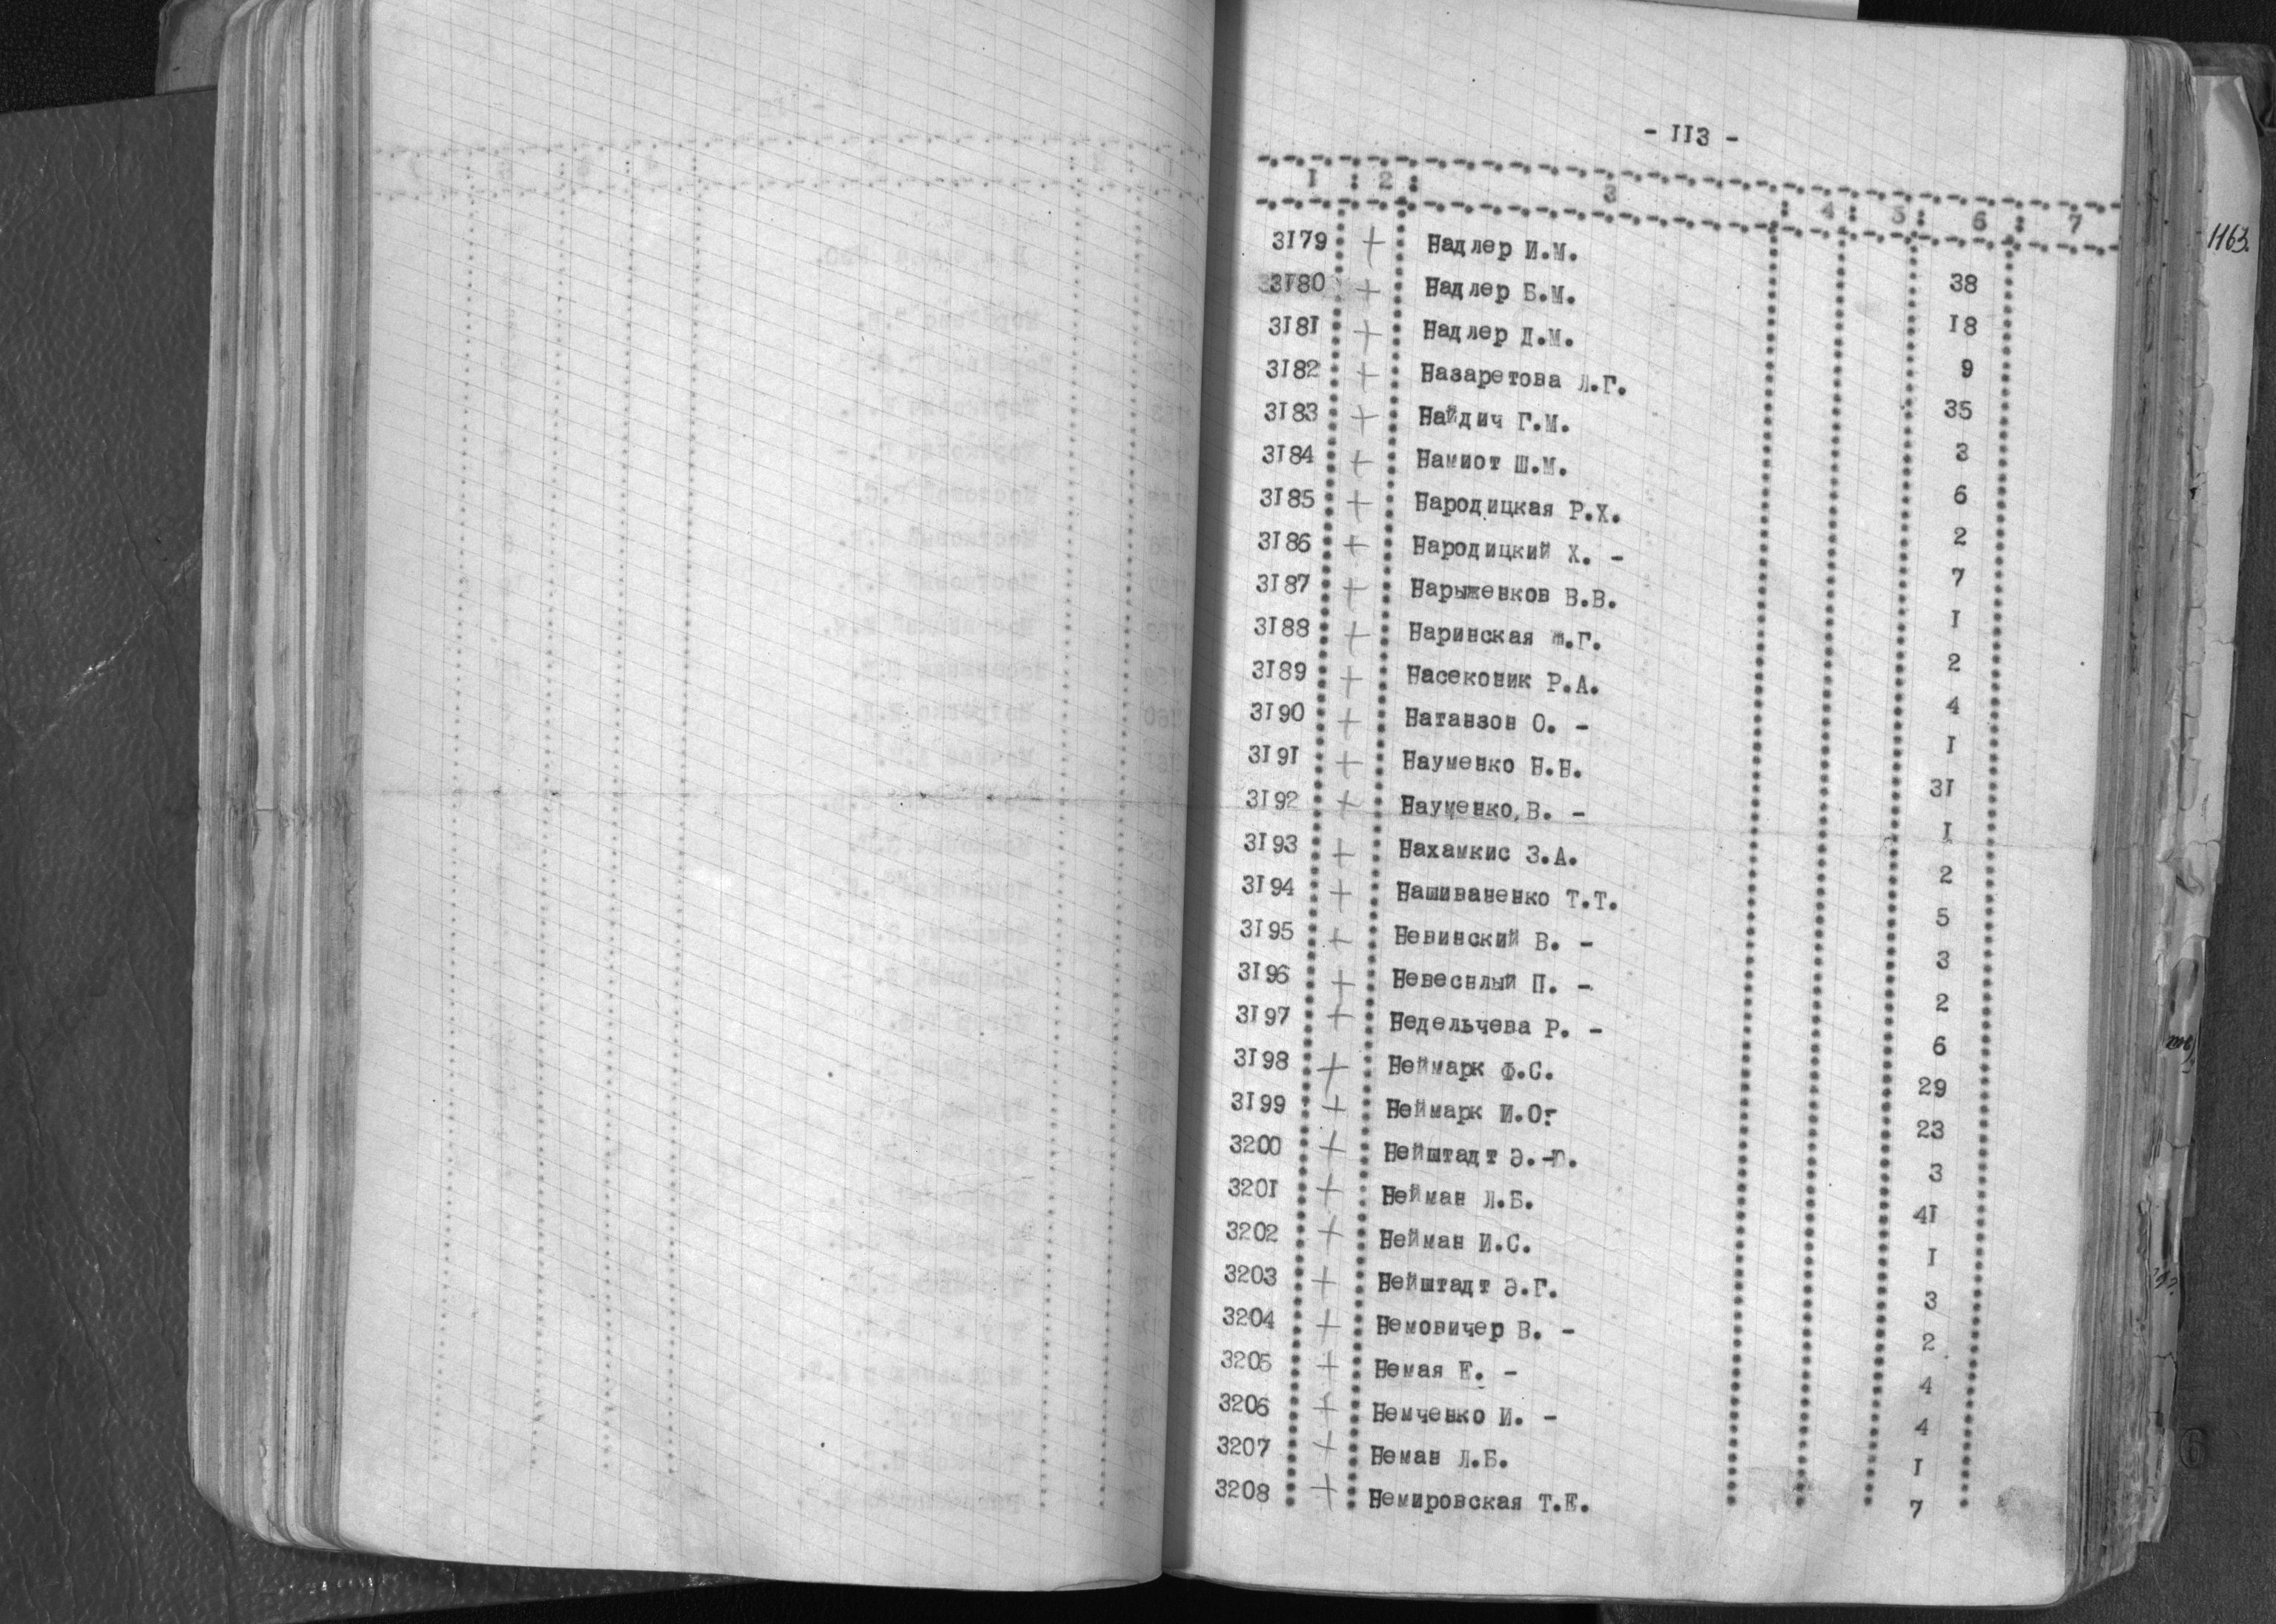 - II3 -
I : 2 : 3 : 4 : 5 : 6 : 7
3I79 + Надлер И.М. 38
3I80 + Надлер Б.М. I8
3I8I + Надлер Д.М. 9
3I82 + Назаретова Л.Г. 35
3I83 + Найдич Г.М. 3
3I84 + Намиот Ш.М. 6
3I85 + Народицкая Р.Х. 2
3I86 + Народицкий Х. - 7
3I87 + Нарыженков В.В. I
3I88 + Наринская Ж.Г. 2
3I89 + Насековик Р.А. 4
3I90 + Натанзон О. - I
3I9I + Науменко Н.Н. 3I
3I92 + Науменко В. - I
3I93 + Нахамкис З.А. 2
3I94 + Нашиваненко Т.Т. 5
3I95 + Невинский В. - 3
3I96 + Невеснлый П. - 2
3I97 + Недельчева Р. - 6
3I98 + Неймарк Ф.С. 29
3I99 + Неймарк И.О. 23
3200 + Нейштадт Э.- 3
320I + Нейман Л.Б. 4I
3202 + Нейман И.С. I
3203 + Нейштадт Э.Г. 3
3204 + Немовичер В. - 2
3205 + Немая Е. - 4
3206 + Немченко И. - 4
3207 + Неман Л.Б. I
3208 + Немировская Т.Е. 7
1163.